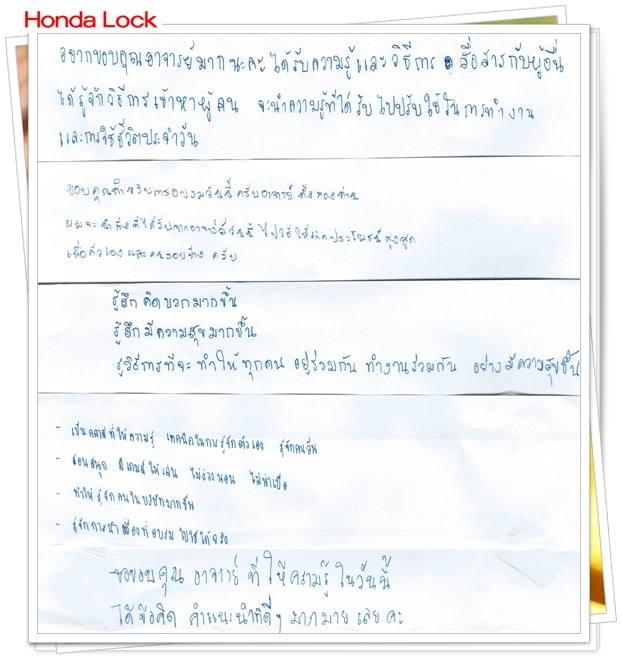 Honda Lock
อยากขอบคุณอาจารย์มากนะคะ ได้รับความรู้และวิธีการ สื่อสารกับผู้อื่น
ได้รู้จักวิธีการเข้าหาผู้คน จะนำความรู้ที่ได้รับไปปรับใช้ในการทำงาน
และการใช้ชีวิตประจำวัน
ขอบคุณสำหรับการอบรมวันนี้ครับอาจารย์ ทั้งสองท่าน
ผมจะนำสิ่งที่ได้รับจากอาจารย์วันนี้ ไปใช้ให้เกิดประโยชน์สูงสุด
เพื่อตัวเองและคนรอบข้าง ครับ
รู้สึกคิดบวกมากขึ้น
รู้สึกมีความสุขมากขึ้น
รู้วิธีการที่จะทำให้ทุกคน อยู่ร่วมกัน ทำงานร่วมกัน อย่างมีความสุขขึ้น
- เป็นคลาสที่ให้ความรู้ เทคนิคในการรู้จักตัวเอง รู้จักคนอื่น
- สอนสนุก มีเกมส์ให้เล่น ไม่ง่วงนอน ไม่น่าเบื่อ
- ทำให้รู้จักคนในบริษัทมากขึ้น
- รู้จักการนำเรื่องที่อบรมไปใช้ได้จริง
ขอขอบคุณ อาจารย์ ที่ให้ความรู้ในวันนี้
ได้ข้อคิด คำแนะนำที่ดีๆ มากมายเลยคะ